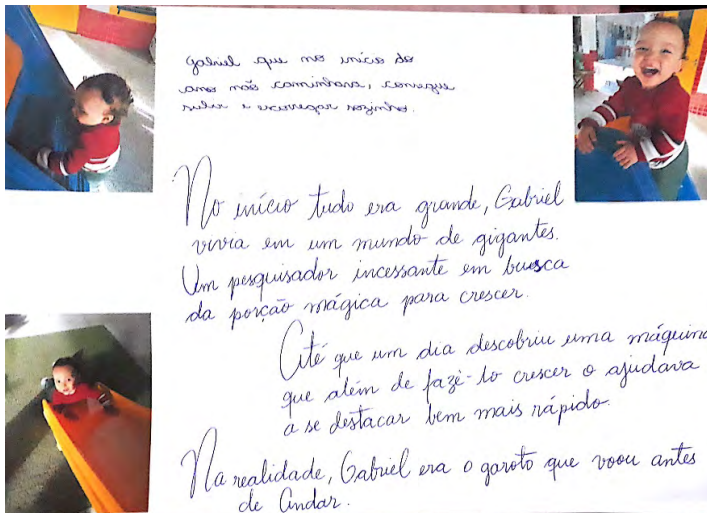 Gabriel que no início do
ano não caminhava, consegue
subir e escorregar sozinho.
No início tudo era grande, Gabriel
vivia em um mundo de gigantes.
Um pesquisador incessante em busca
da porção mágica para crescer.
Até que um dia descobriu uma máquina
que além de fazê-lo crescer o ajudava
a se destacar bem mais rápido.
Na realidade, Gabriel era o garoto que voou antes
de Andar.